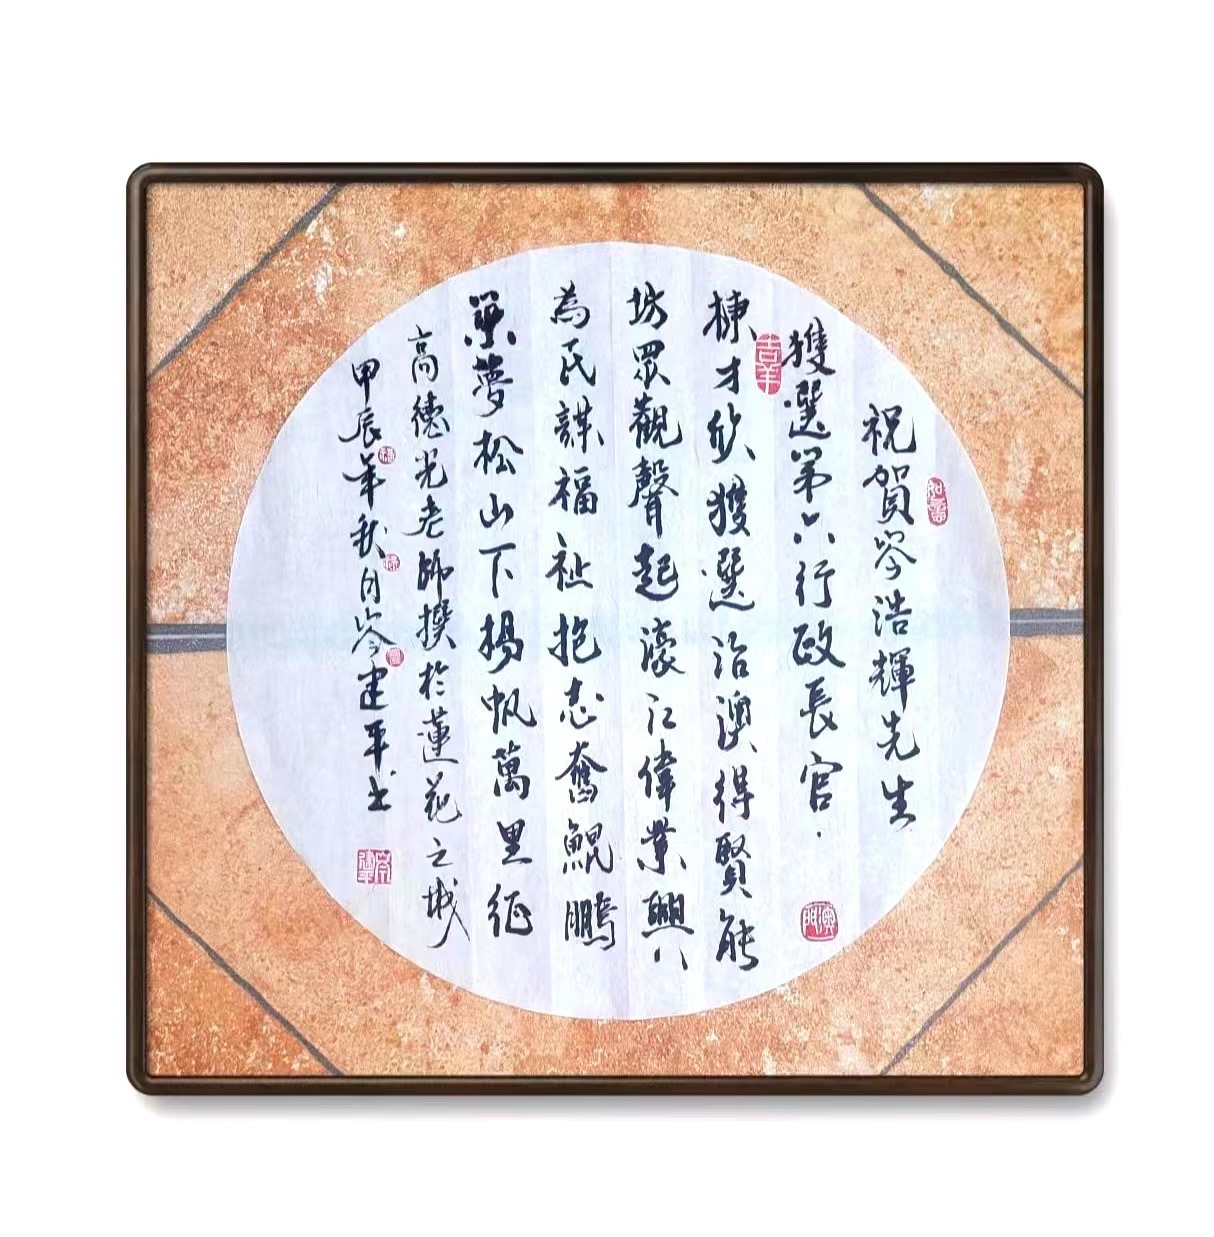 祝賀岑浩輝先生
獲選第六行政長官
棟才欣獲選治澳得賢能
坊眾觀聲起濠江偉業興八
為民謀福祉抱志奮鯤鵬
築夢松山下揚帆萬里征
高德光老師撰於蓮花之城
甲辰年秋月岑建平書
如意
吉羊
澳門